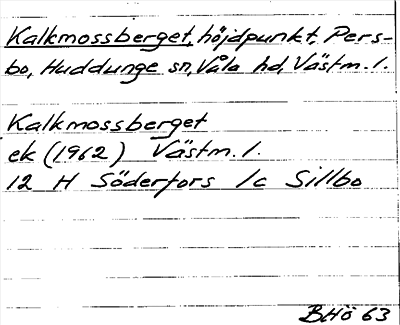 Kalkmossberget, höjdpunkt, Pers-
bo, Huddunge sn, Våla hd, Västm. l.
Kalkmossberget
ek (1962) Västm. l.
12 H Söderfors 1c Sillbo
BHö 63